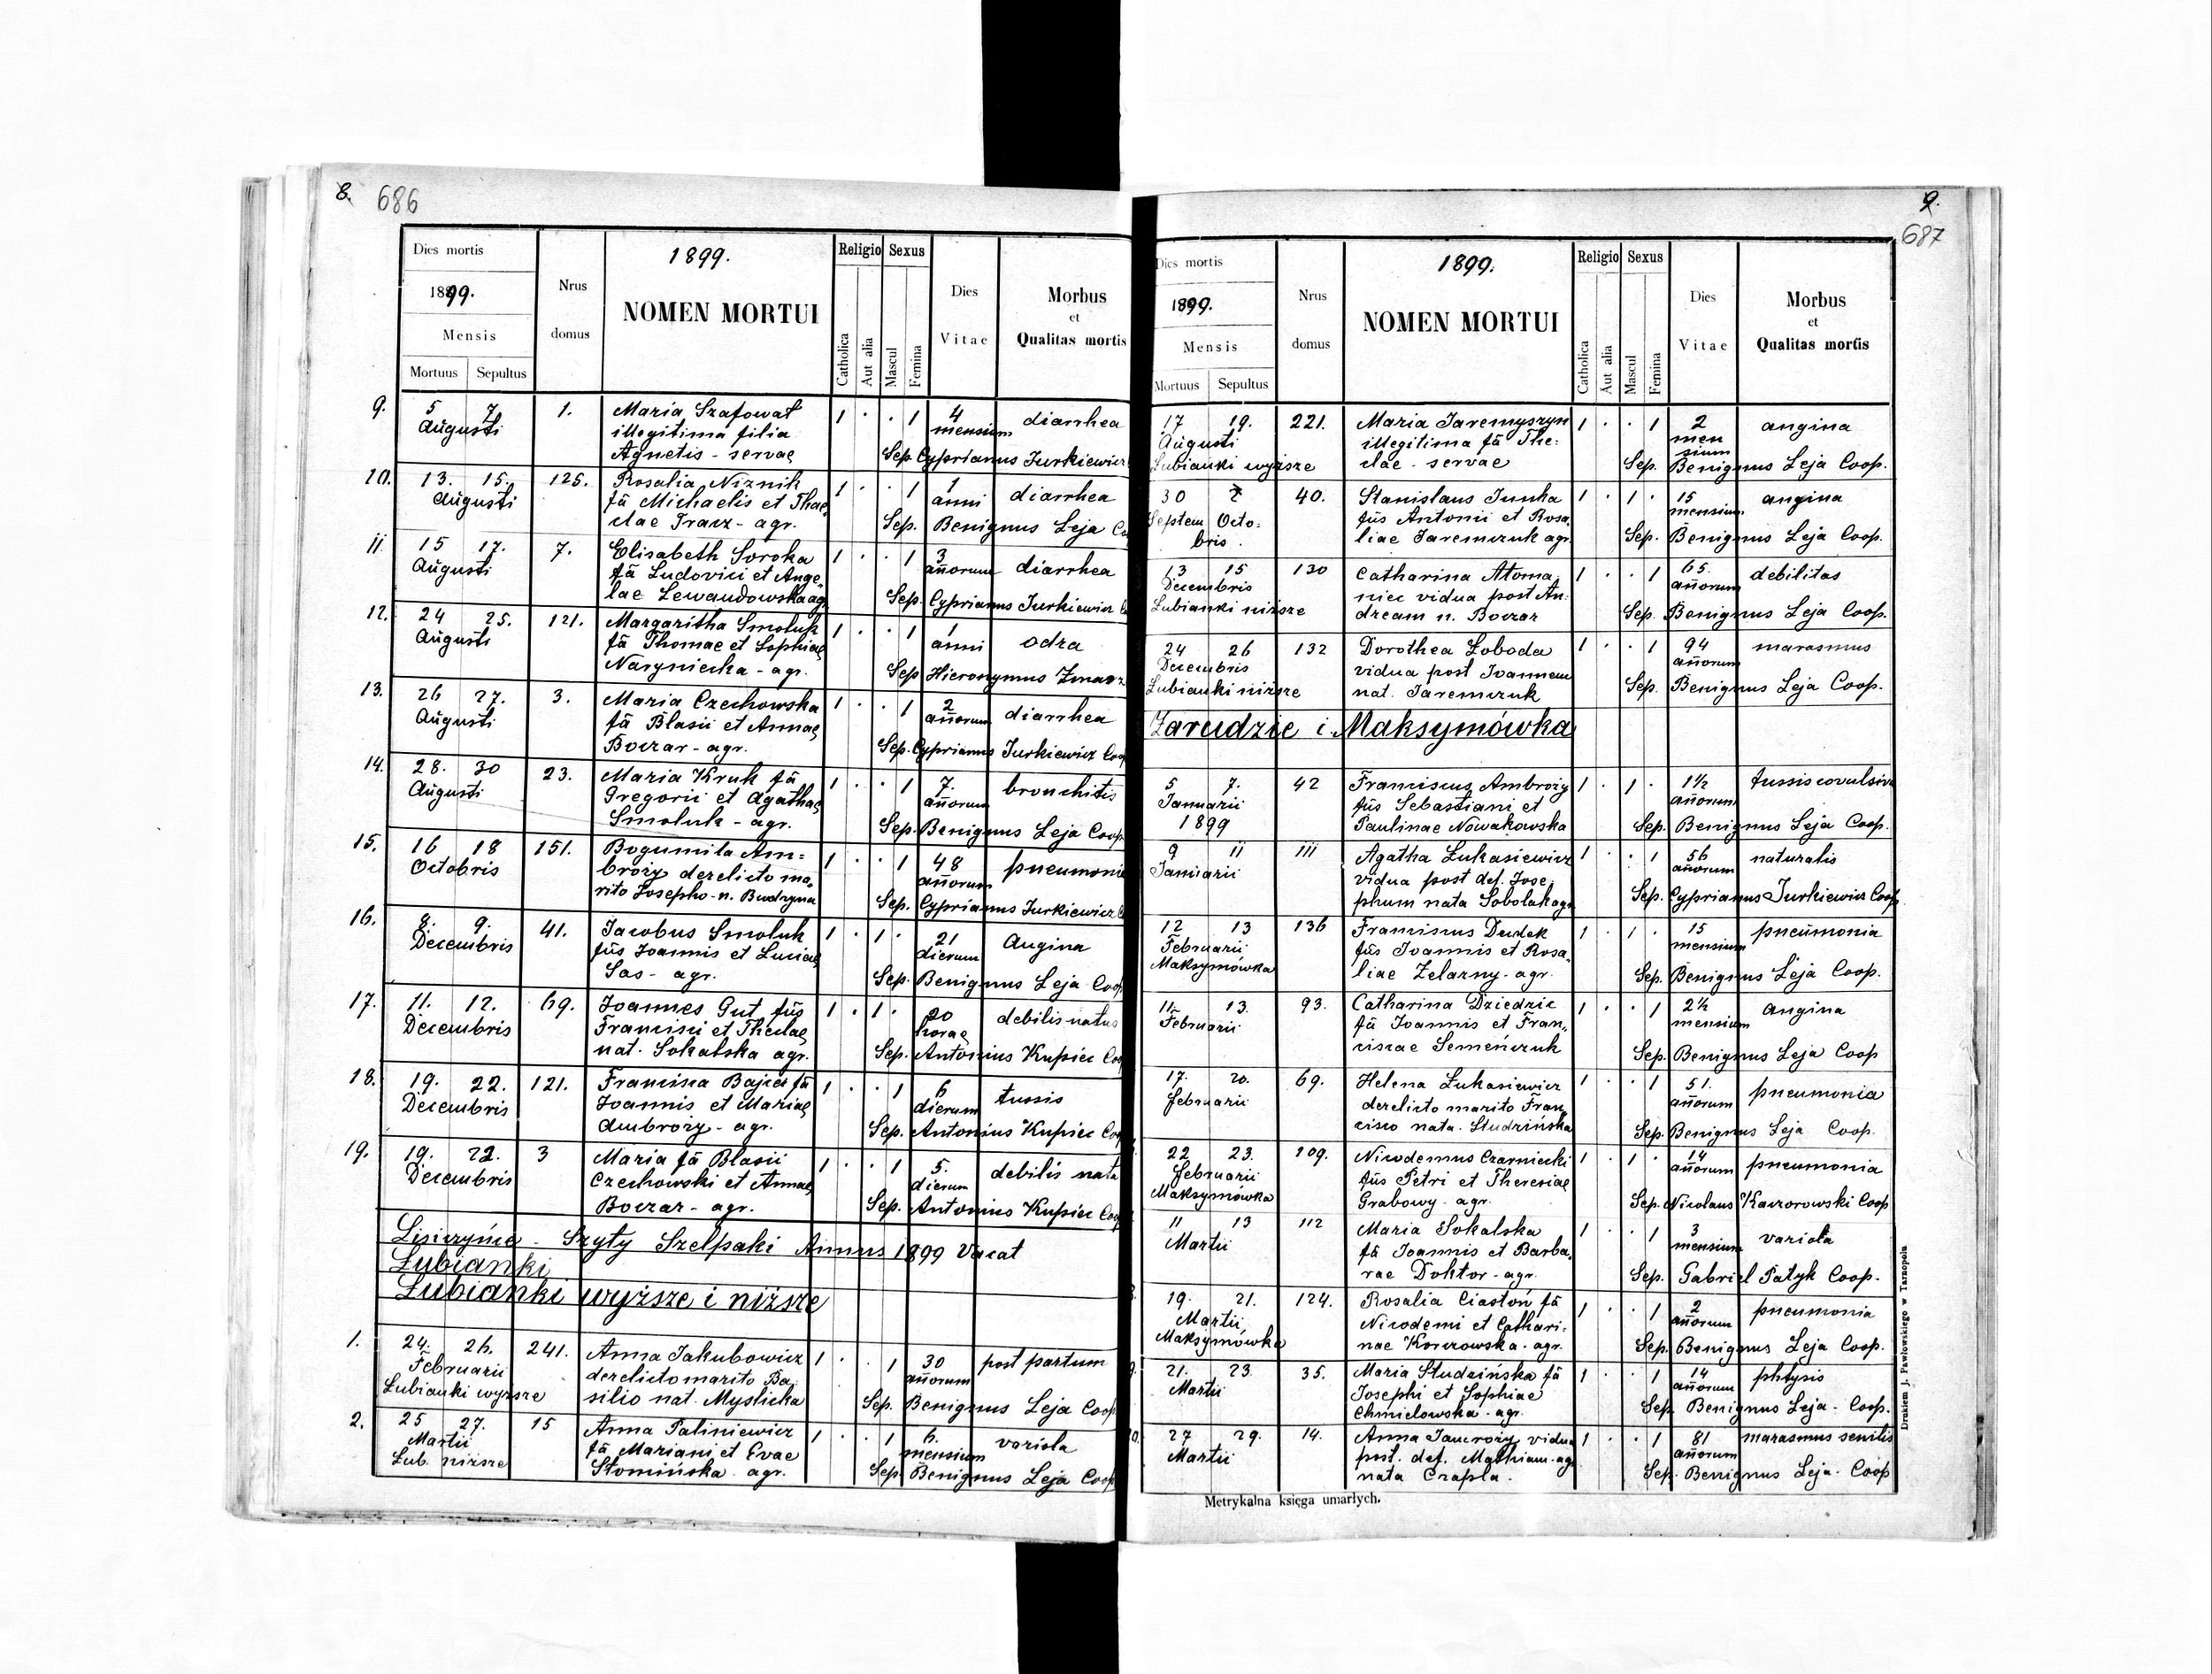 8. 686
Dies mortis
1899.
Mensis
Mortuus Sepultus
Nrus domus
1899.
NOMEN MORTUI
Religio
Catholica
Aut alia
Sexus
Mascul
Femina
Dies
Vitae
Morbus
et
Qualitas mortis
9. 5 7. 1. Maria Szafowat 1 . . 1 4 diarrhea
Augusti illegitima filia mensium
Agnetis - servae Sep. Cyprianus Jurkiewicz
10. 13. 15. 125. Rosalia Niznik 1 . . 1 1 diarrhea
Augusti fā Michaelis et Thae anni
clae Tracz - agr. Sep. Benignus Leja Co
11. 15 17. 7. Elisabeth Soroka 1 . . 1 3 diarrhea
Augusti fā Ludovici et Ange= añorum
lae Lewandowska agr Sep. Cyprianus Jurkiewicz
12. 24 25. 121. Margaritha Smoluk 1 . . 1 1 odra
Augusti fā Thomae et Sophiae anni
Naryniecka - agr. Sep Hieronymus
13. 26 27. 3. Maria Czechowska 1 . . 1 2 diarrhea
Augusti fā Blasii et Annae añorum
Boczar - agr. Sep. Cyprianus Jurkiewicz Coop
14. 28. 30 23. Maria Kruk fā 1 . . 1 7. bronchitis
Augusti Gregorii et Agathae añorum
Smoluk - agr. Sep. Benignus Leja Coop.
15. 16 18 151. Bogumila Am= 1 . . 1 48 pneumoni
Octobris broży derelicto ma= añorum
rito Josepho - n. Budzyna Sep. Cyprianus Jurkiewicz
16. 8. 9. 41. Jacobus Smoluk 1 . 1 . 21 Angina
Decembris fūs Joannis et Luciae dierum
Sas - agr. Sep. Benignus Leja Coop
17. 11. 12. 69. Joannes Gut fūs 1 . 1 . 20 debilis natus
Decembris Francisci et Theclae horae
nat. Sokalska agr. Sep. Antonius Kupiec Co
18. 19. 22. 121. Francisca Bajcer fā 1 . . 1 6 tussis
Decembris Joannis et Mariae dierum
Ambroży - agr. Sep. Antonius Kupiec Coo
19. 19. 22. 3 Maria fā Blasii 1 . . 1 5. debilis nata
Decembris Czechowski et Annae dierum
Boczar - agr. Sep. Antonius Kupiec Coo
Lisiczyńce - Szyły Szelpaki Annus 1899 Vacat
Łubianki
Łubianki wyższe i niższe
1. 24. 26. 241. Anna Jakubowicz 1 . . 1 30 post partum
Februarii derelicto marito Ba= añorum
Łubianki wyższe silio nat. Myslicka Sep. Benignus Leja Coop
2. 25 27. 15 Anna Paliniewicz 1 . . 1 6. variola
Martii fā Mariani et Evae mensium
Łub. niższe Słomińska - agr. Sep. Benignus Leja Coop
9.
687
Dies mortis
1899.
Mensis
Mortuus Sepultus
Nrus domus
1899.
NOMEN MORTUI
Religio
Catholica
Aut alia
Sexus
Mascul
Femina
Dies
Vitae
Morbus
et
Qualitas mortis
17 19. 221. Maria Jaremyszyn 1 . . 1 2 angina
Augusti illegitima fā The= mensium
Łubianki wyższe clae - servae Sep. Benignus Leja Coop.
30 2 40. Stanislaus Junka 1 . 1 . 15 angina
Septem Octo= fūs Antonii et Rosa= mensium
bris. liae Jaremczuk agr. Sep. Benignus Leja Coop.
13 15 130 Catharina Atoma= 1 . . 1 65. debilitas
Decembris niec vidua post An= añorum
Łubianki niższe dream n. Boczar Sep. Benignus Leja Coop.
24 26 132 Dorothea Łoboda 1 . . 1 94 marasmus
Decembris vidua post Joannem añorum
Łubianki niższe nat. Jaremczuk Sep. Benignus Leja Coop.
Zarudzie i Maksymówka
5 7. 42 Franciscus Ambroży 1 . 1 . 1½ tussis covulsiva
Januarii fūs Sebastiani et añorum
1899 Paulinae Nowakowska Sep. Benignus Leja Coop.
9 11 111 Agatha Łukasiewicz 1 . . 1 56 naturalis
Januarii vidua post def. Jose= añorum
phum nata Sobolak agr Sep. Cyprianus Jurkiewicz Coop
12 13 136 Franciscus Dudek 1 . 1 . 15 pneumonia
Februarii fūs Joannis et Rosa= mensium
Maksymówka liae Żelazny - agr. Sep. Benignus Leja Coop.
11. 13. 93. Catharina Dziedzic 1 . . 1 2½ angina
Februarii fā Joannis et Fran= mensium
ciscae Semeńczuk Sep. Benignus Leja Coop
17. 20. 69. Helena Łukasiewicz 1 . . 1 51. pneumonia
Februarii derelicto marito Fran= añorum
cisco nata Studzińska Sep. Benignus Leja Coop.
22 23. 109. Nicodemus Czarniecki 1 . 1 . 14 pneumonia
Februarii fūs Petri et Theresiae añorum
Maksymówka Grabowy - agr. Sep. Nicolaus Kaczorowski Coop
11 13 112 Maria Sokalska 1 . . 1 3 variola
Martii fā Joannis et Barba= mensium
rae Doktor - agr. Sep. Gabriel Patyk Coop.
19. 21. 124. Rosalia Ciastoń fā 1 . . 1 2 pneumonia
Martii Nicodemi et Cathari= añorum
Maksymówka nae Korczowska - agr. Sep. Benignus Leja Coop.
21. 23 35. Maria Studzińska fā 1 . . 1 14 phtysis
Martii Josephi et Sophiae añorum
Chmielowska - agr. Sep. Benignus Leja - Coop.
27 29. 14. Anna Jamroży vidua 1 . . 1 81 marasmus senilis
Martii post. def. Mathiam - agr añorum
nata Czapla. Sep. Benignus Leja - Coop
Metrykalna księga umarłych.
Drukiem J. Pawłowskiego w Tarnopolu